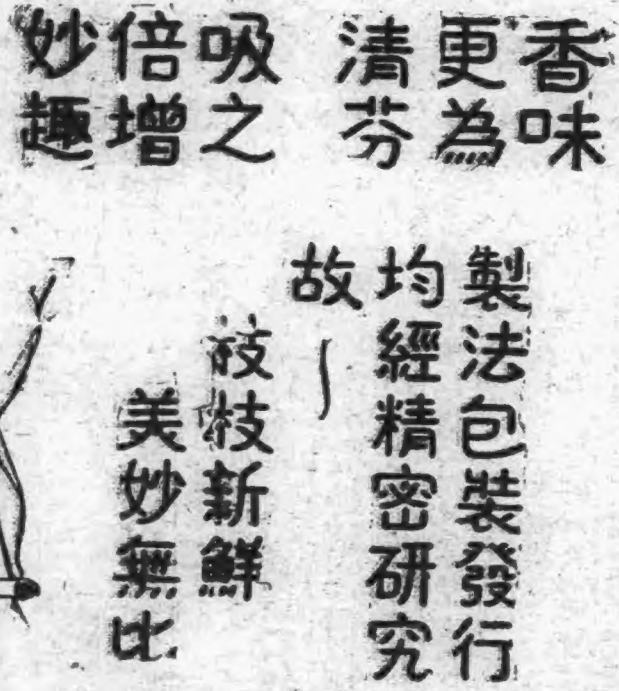 香味
更為
清芬
吸之
倍增
妙趣
製法包裝發行
均經精密研究
故～
枝枝新鮮
美妙無比